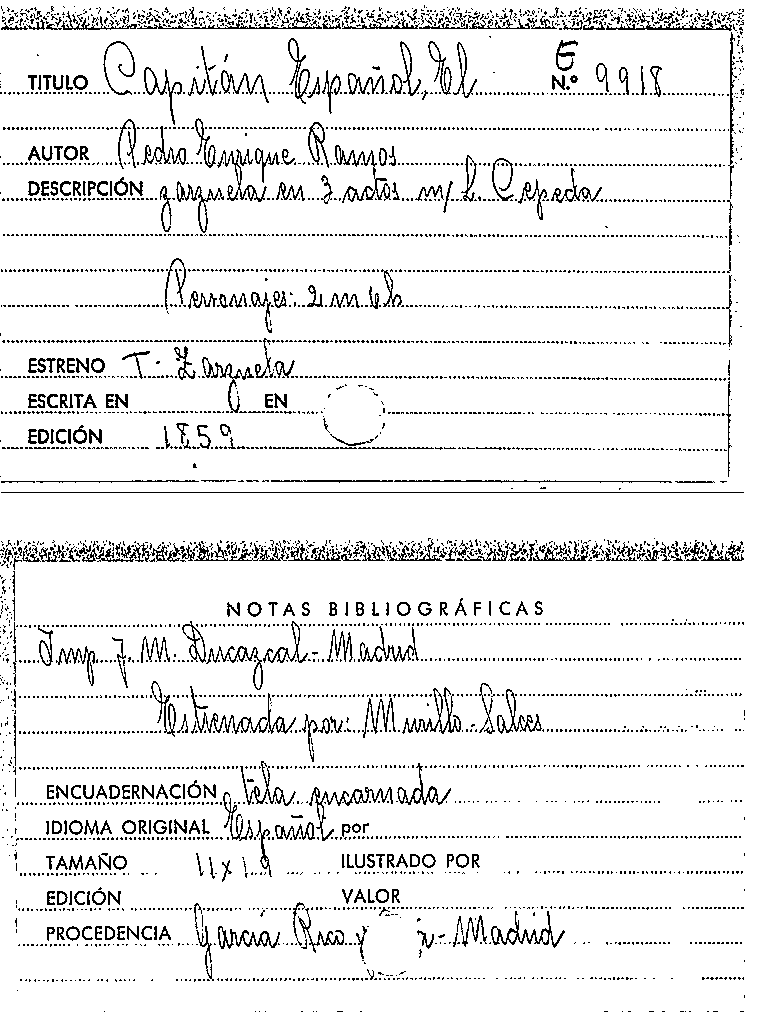 TITULO Capitán Español, El E N.º 9918
AUTOR Pedro Enrique Ramos
DESCRIPCIÓN zarzuela en 3 actos m/ L. Cepeda
Personajes: 2 m 6 h
ESTRENO T. Zarzuela
ESCRITA EN EN
EDICIÓN 1859
NOTAS BIBLIOGRÁFICAS
Imp J. M. Ducazcal - Madrid
Estrenada por: Murillo - Salces
ENCUADERNACIÓN tela encarnada
IDIOMA ORIGINAL Español por
TAMAÑO 11 x 19 ILUSTRADO POR
EDICIÓN VALOR
PROCEDENCIA García Rico y - Madrid